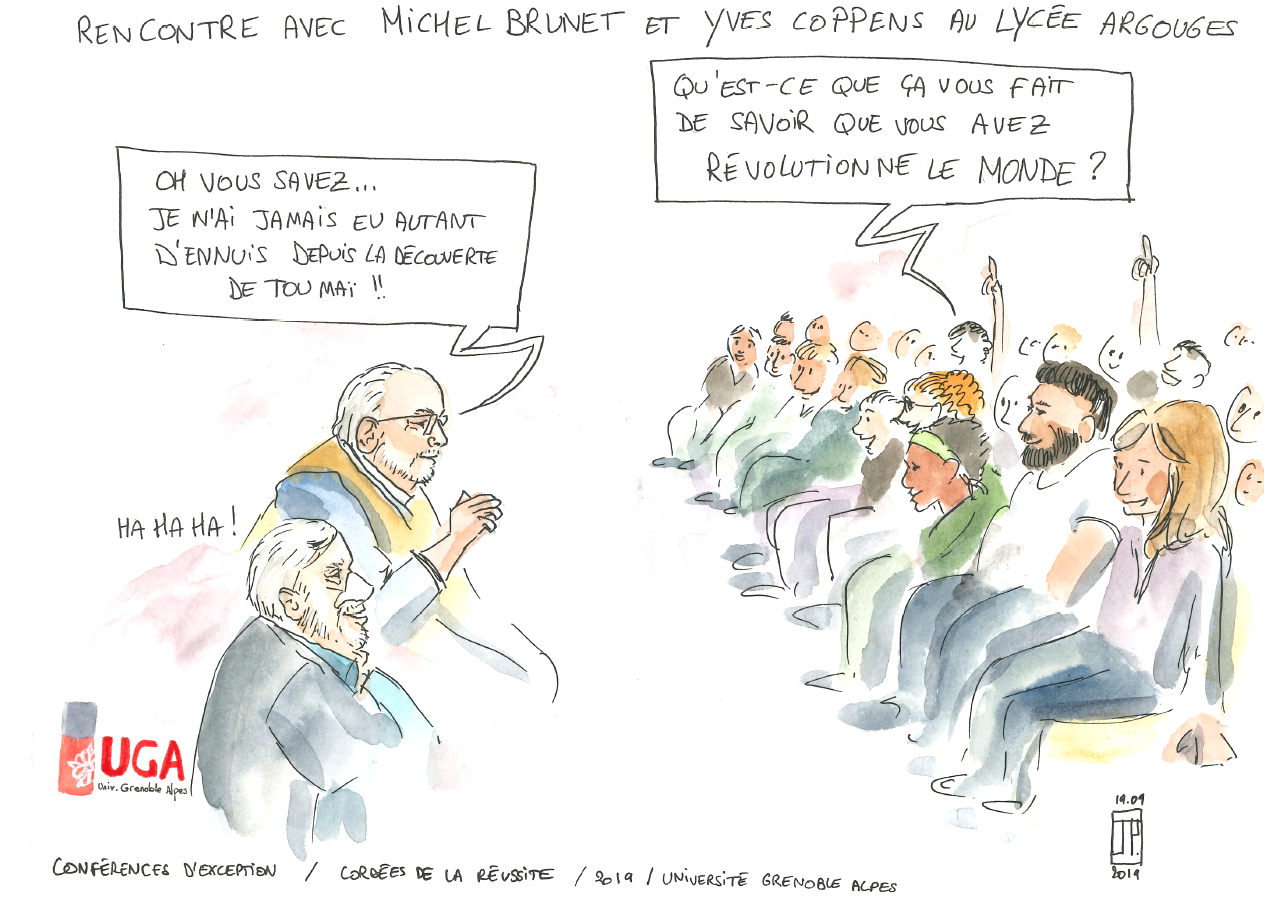 RENCONTRE AVEC MICHEL BRUNET ET YVES COPPENS AU LYCÉE ARGOUGES
QU'EST-CE QUE ÇA VOUS FAIT
DE SAVOIR QUE VOUS AVEZ
RÉVOLUTIONNÉ LE MONDE ?
OH VOUS SAVEZ...
JE N'AI JAMAIS EU AUTANT
D'ENNUIS DEPUIS LA DÉCOUVERTE
DE TOUMAÏ !!
HA HA HA !
UGA
Univ. Grenoble Alpes
19.09
JP.
2019
CONFÉRENCES D'EXCEPTION / CORDÉES DE LA RÉUSSITE / 2019 / UNIVERSITÉ GRENOBLE ALPES